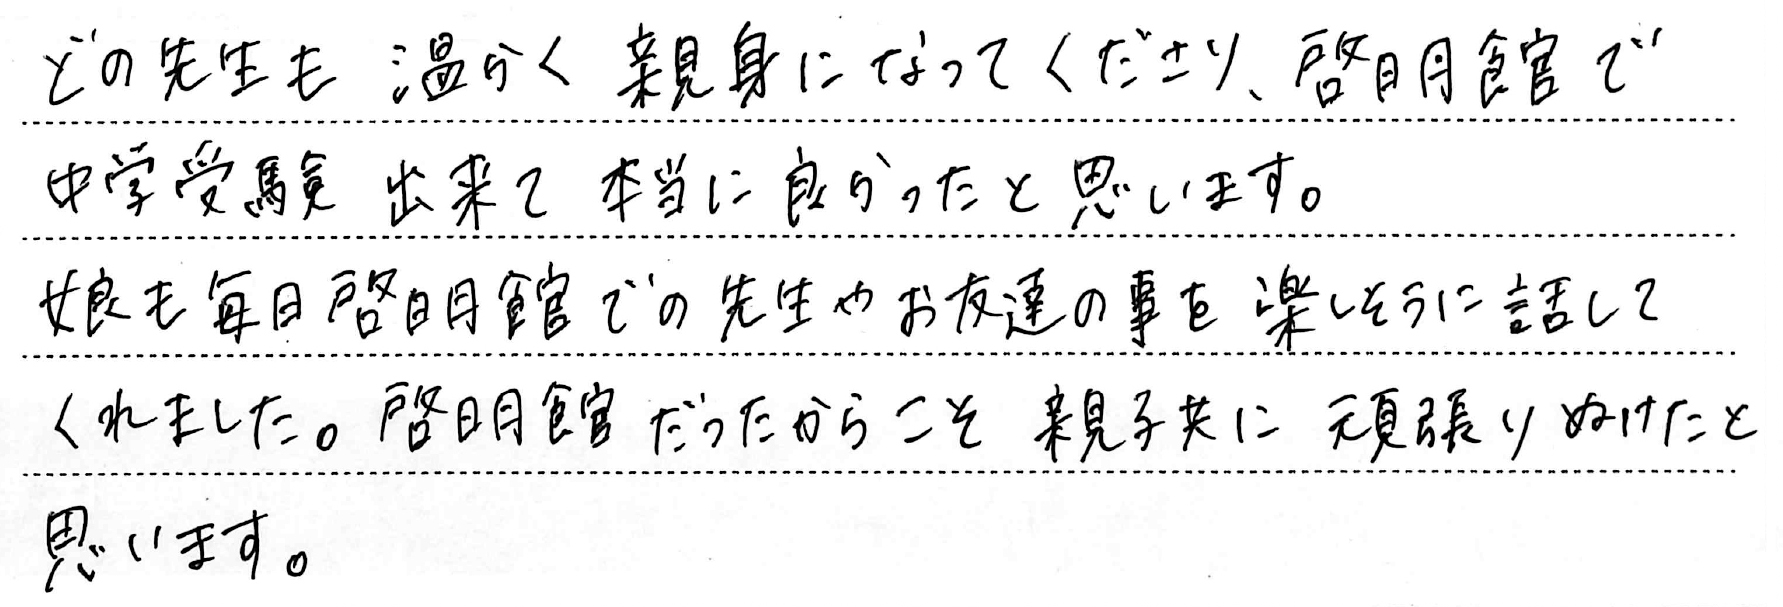 どの先生も温かく親身になってくださり、啓明館で
中学受験出来て本当に良かったと思います。
娘も毎日啓明館での先生やお友達の事を楽しそうに話して
くれました。啓明館だったからこそ親子共に頑張りぬけたと
思います。